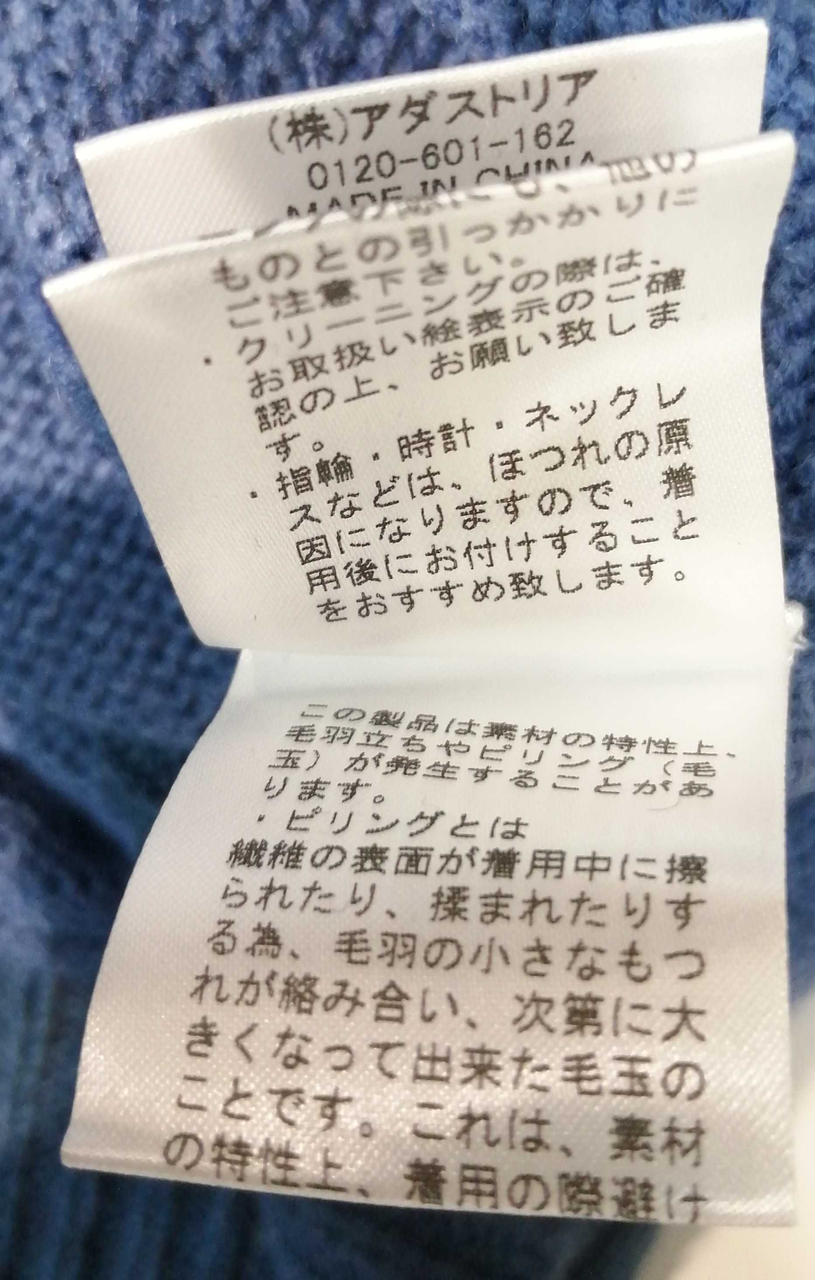 (株)アダストリア
0120-601-162
MADE IN CHINA
ものとの引っかかりに
ご注意下さい。
・クリーニングの際は、
お取扱い絵表示のご確
認の上、お願い致しま
す。
・指輪・時計・ネックレ
スなどは、ほつれの原
因になりますので、着
用後にお付けすること
をおすすめ致します。
この製品は素材の特性上、
毛羽立ちやピリング（毛
玉）が発生することがあ
ります。
・ピリングとは
繊維の表面が着用中に擦
られたり、揉まれたりす
る為、毛羽の小さなもつ
れが絡み合い、次第に大
きくなって出来た毛玉の
ことです。これは、素材
の特性上、着用の際避け